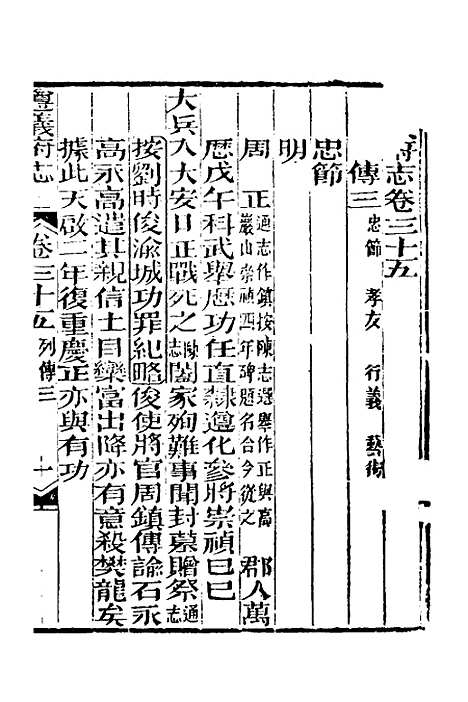 府志卷三十五
傳三 忠節 孝友 行義 藝術
忠節
明
周 正 通志作鎮按陳志選舉作正與高巖山崇禎四年碑題名合今從之 郡人萬
歷戊午科武舉歷功任直隸遵化參將崇禎己巳
大兵入大安口正戰死之 陳志 闔家殉難事聞封墓贈祭 通志
按劉時俊渝城功罪紀略俊使將官周鎮傳諭石永
高永高遣其親信士目欒富出降亦有意殺樊龍矣
據此天啟二年復重慶正亦與有功
遵義府志 卷三十五 列傳三 一